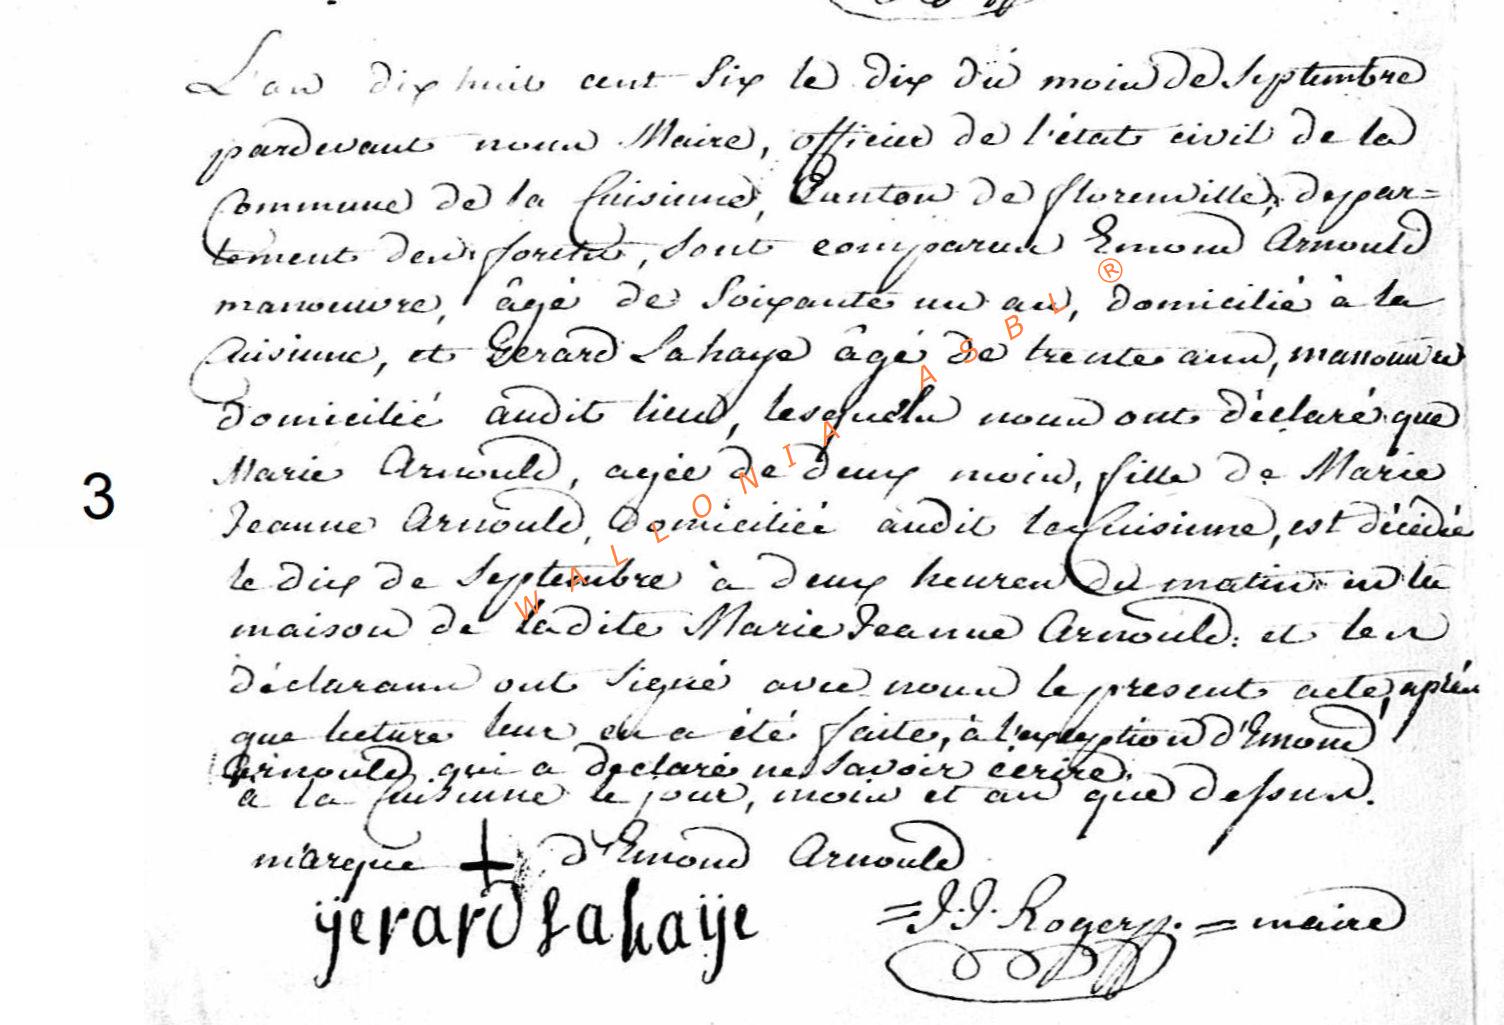 L'an dix huit cent six le dix du mois de Septembre
pardevant nous Maire, officier de l'état civil de la
Commune de la Cuisinne, Canton de florenville, depar=
tement des forets, sont comparus Emond Arnould
manouvre, âgé de Soixante un an, domicilié à la
Cuisinne, et Gerard Lahaye âgé de trente ans, manouvre
domicilié audit lieu, lesquels nous ont déclaré que
Marie Arnould, agée de deux mois, fille de Marie
Jeanne Arnould, domiciliée audit la Cuisinne, est décédée
le dix de Septembre à deux heures du matin en la
maison de ladite Marie Jeanne Arnould. et les
déclarans ont signé avec nous le present acte, après
que lecture leur en a été faite, à l'exception d'Emond
Arnould qui a declaré ne savoir écrire.
à la Cuisinne le jour, mois et an que dessus.
3
marque + d'Emond Arnould
gerard Lahaije
=J. J. Rogers. = maire
WALLONIA ASBL ®